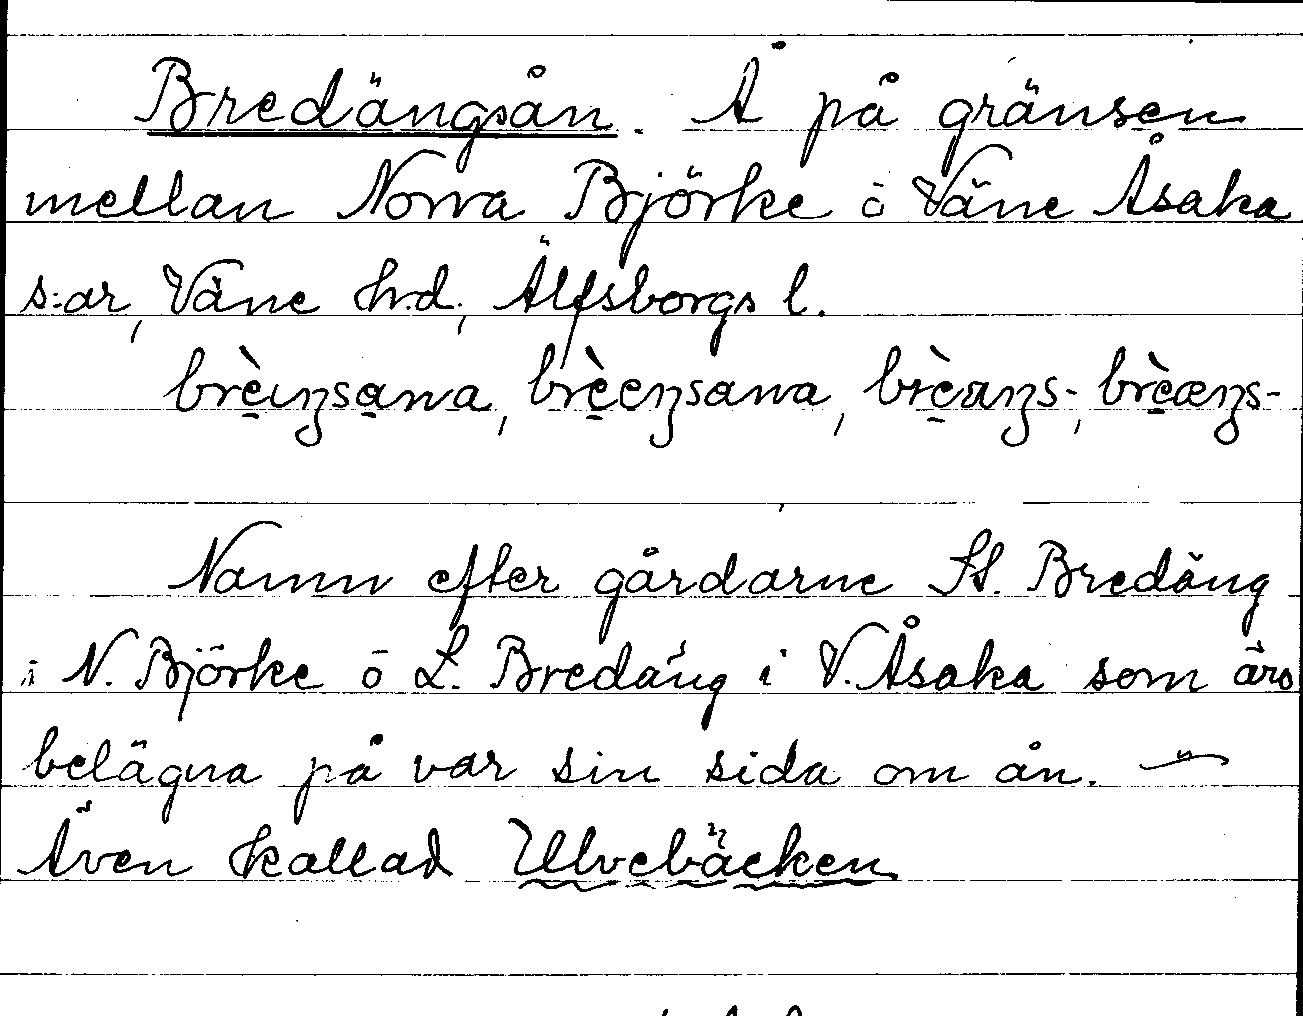 Bredängsån. Å på gränsen
mellan Norra Björke ō Väne Åsaka
s:ar, Väne h.d., Älfsborgs l.
brè̠ıŋsa̠wa, brè̠eŋsawa, brè̠aŋs-, brè̠æŋs-
Namn efter gårdarne St. Bredäng
i N. Björke ō L. Bredäng i V. Åsaka som äro
belägna på var sin sida om ån. —
Även kallad Ulvebäcken